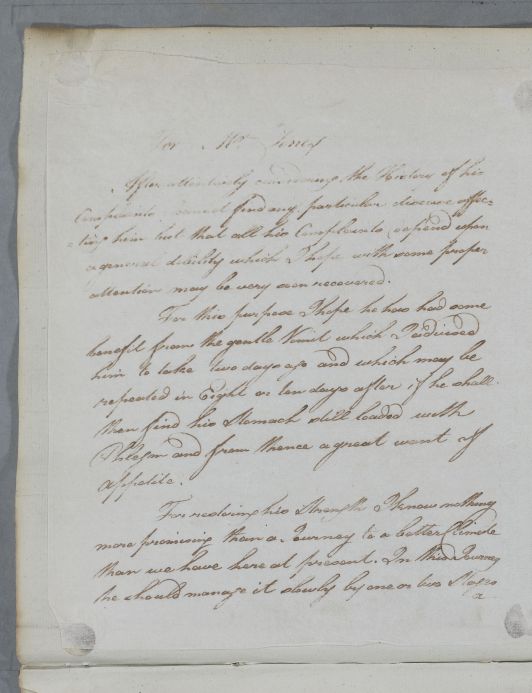 For Mr Jones
After attentively considering the History of his
Complaints cannot find any particular disease affec-
-ting him but that all his Complaints depend upon
a general debility which I hope with some proper
attention may be very soon recovered.
For this purpose I hope he has had some
benefit from the gentle Vomit which I advised
him to take two days ago and which may be
repeated in Eight or ten days after if he shall
then find his Stomach still loaded with
Phlegm and from thence a great want of
appetite.
For restoring his Strength I know nothing
more promising than a Journey to a better Climate
than we have here at present. In this Journey
he should manage it slowly by one or two Stages
a